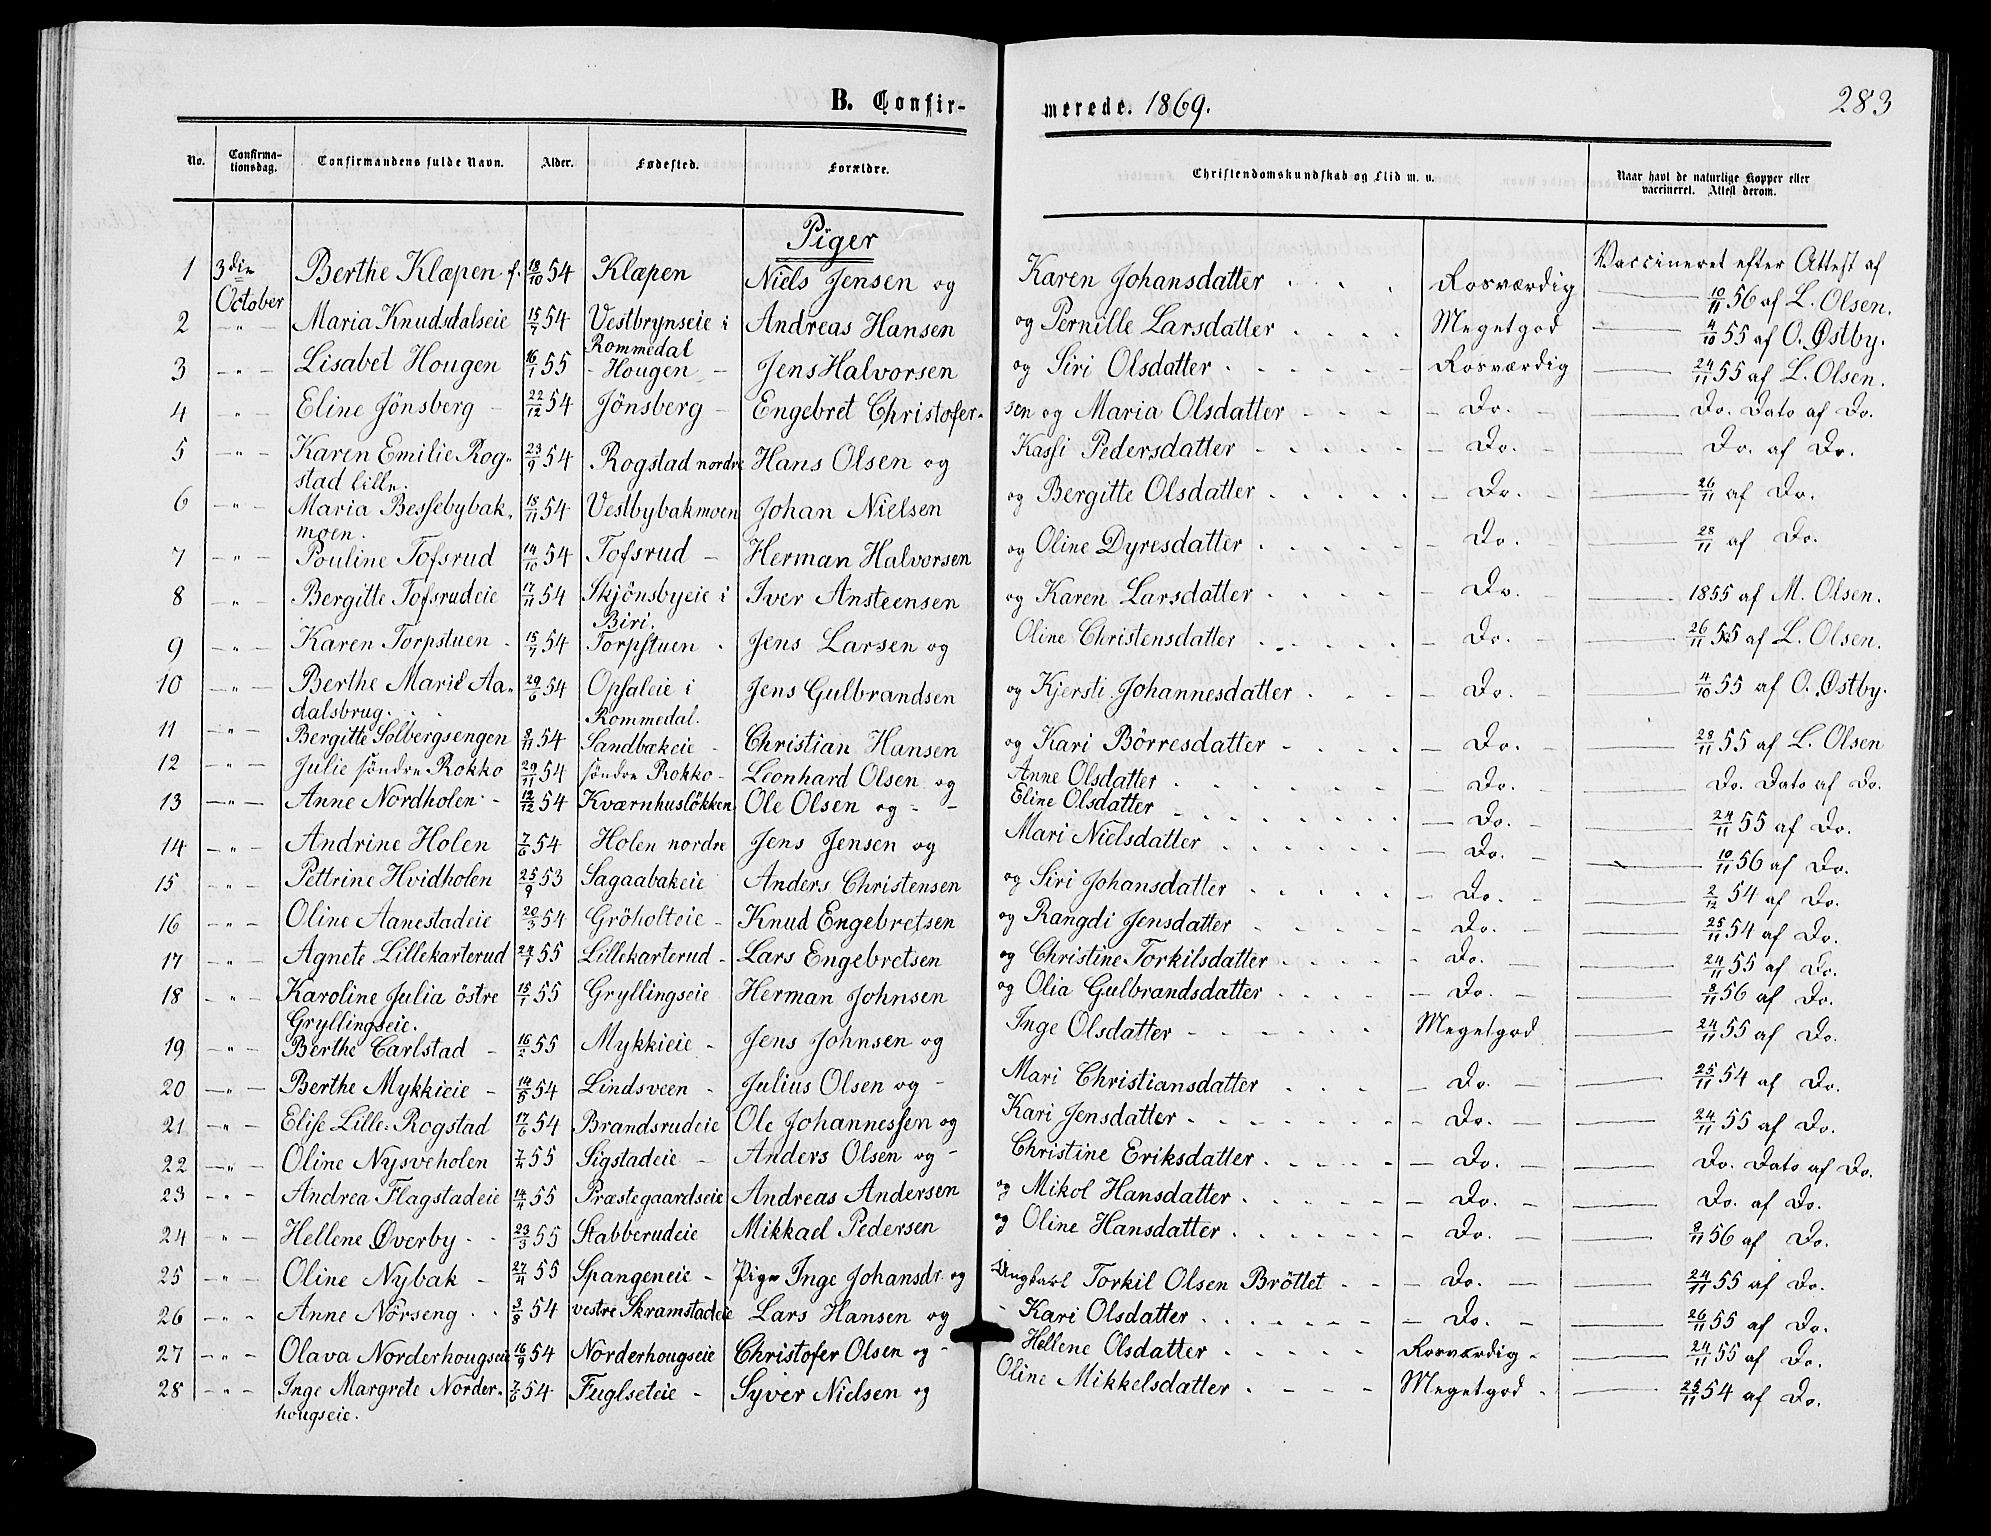 B. Confir- merede. 1869. 283
No. Confirma-tionsdag. Confirmandens fulde Navn. Alder. Fødested. Forældre. Christendomskundskab og Flid m. v. Naar havt de naturlige Kopper eller vaccineret. Attest derom.
Piger
Vaccineret efter Attest af
1 3die October Berthe Klæpen f. 18/10 54 Klæpen Niels Jensen og Karen Johansdatter Rosværdig 10/11 56 af L. Olsen.
2 " Maria Knudsdalseie 15/7 54 Vestbrynseie i Rommedal Andreas Hansen og Pernille Larsdatter Megetgod 4/10 55 af O. Østby.
3 " Lisabet Hougen 16/1 55 - Hougen - Jens Halvorsen og Siri Olsdatter Rosværdig 24/11 55 af L. Olsen.
4 " Eline Jönsberg - 22/12 54 Jönsberg - Engebret Christofer-sen og Maria Olsdatter - Do. - Do. Dato af Do.
5 " Karen Emilie Rog-stad lille. 23/9 54 Rogstad nordre Hans Olsen og Kassi Pedersdatter - Do. Do. af Do.
6 " Maria Bessebybak-moen. 15/11 54 Vestbybakmoen Johan Nielsen og Bergitte Olsdatter - Do. - 26/11 af Do.
7 " Pouline Tofsrud 14/10 54 Tofsrud - Herman Halvorsen og Oline Dyresdatter - Do. 28/11 af Do.
8 " Bergitte Tofsrudeie 17/11 54 Skjönsbyeie i Biri. Iver Ansteensen og Karen Larsdatter - Do. - 1855 af M. Olsen.
9 " Karen Torpstuen - 15/7 54 Torpstuen - Jens Larsen og Oline Christensdatter - Do. - 26/11 55 af L. Olsen.
10 " Berthe Marie Aa-dalsbrug. 29/6 54 Opsaleie i Rommedal. Jens Gulbrandsen og Kjersti Johannesdatter - Do. - 4/10 55 af O. Østby.
11 " Bergitte Solbergsengen 8/11 54 Sandbækeie - Christian Hansen og Kari Börresdatter - Do. - 28/11 55 af L. Olsen
12 " Julie söndre Rokko 29/11 54 söndre Rokko - Leonhard Olsen og Anne Olsdatter - Do. - Do. Dato af Do.
13 " Anne Nordholen - 12/12 54 Kværnhuslökken Ole Olsen og - Eline Olsdatter - Do. - 24/11 55 af Do.
14 " Andrine Holen 7/6 54 Holen nordre Jens Jensen og Mari Nielsdatter - Do. - 10/11 56 af Do.
15 " Pettrine Hvidholen 25/9 53 Sagaabakeie Anders Christensen og Siri Johansdatter - Do. - 2/12 54 af Do.
16 " Oline Aanestadeie 20/3 54 Gröholteie - Knud Engebretsen og Rangdi Jensdatter - Do. - 25/11 54 af Do.
17 " Agnete Lillekarterud 24/1 55 Lillekarterud - Lars Engebretsen og Christine Torkilsdatter - Do. 24/11 55 af Do.
18 " Karoline Julia östre Gryllingseie. 15/1 55 Gryllingseie Herman Johnsen og Olia Gulbrandsdatter - Do. - 8/11 56 af Do.
19 " Berthe Carlstad - 16/2 55 Mykkieie - Jens Johnsen og Inge Olsdatter Megetgod 24/11 55 af Do.
20 " Berthe Mykkieie - 14/5 54 Lindsveen - Julius Olsen og - Mari Christiansdatter - Do. - 25/11 54 af Do.
21 " Elise Lille-Rogstad 17/6 54 Brandsrudeie Ole Johannessen og Kari Jensdatter - Do. - 24/11 55 af Do.
22 " Oline Nysveholen 7/4 55 Sigstadeie - Anders Olsen og - Christine Eriksdatter - Do. - Do. Dato af Do.
23 " Andrea Flagstadeie 14/4 55 Præstegaardseie Andreas Andersen og Mikol Hansdatter - Do. - Do. af Do.
24 " Hellene Øverby - - 23/3 55 Stabberudeie Mikkael Pedersen og Oline Hansdatter - Do. - 8/11 56 af Do.
25 " Oline Nybak - 27/4 55 Spangeneie - Pige Inge Johansdr. og Ungkarl Torkil Olsen Bröttet - Do. - 24/11 55 af Do.
26 " Anne Nörseng - - 3/8 54 vestre Skramstadeie Lars Hansen og - Kari Olsdatter - Do. - 26/11 55 af Do.
27 " Olava Norderhougseie 16/9 54 Norderhougseie Christofer Olsen og - Hellene Olsdatter Rosværdig - 24/11 55 af Do.
28 " Inge Margrete Norder-hougseie. 7/6 54 Fuglseteie - Syver Nielsen og Oline Mikkelsdatter Megetgod - 25/11 54 af Do.